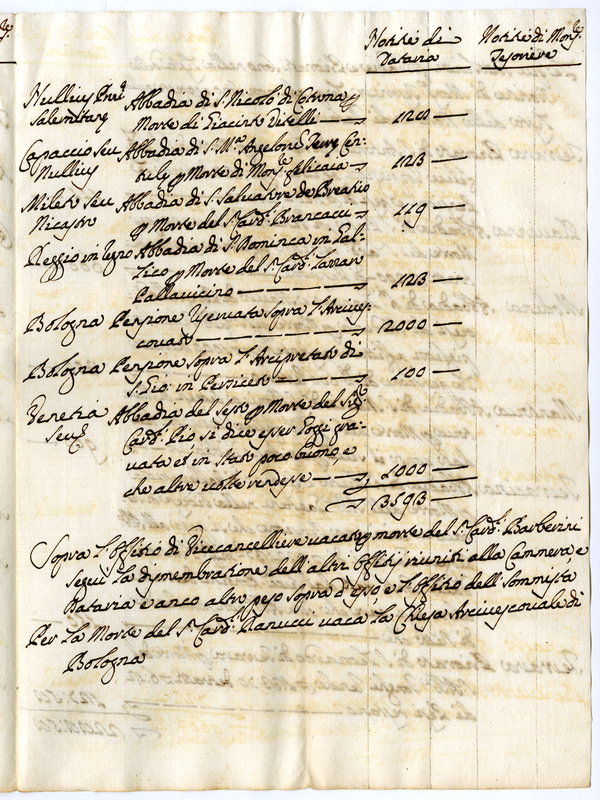 Notizie di Dataria
Notizie di Mons.re Tesoriere
Nullius Prov.
Salernitang
Abbadia di S. Nicolò di Cotrona p
Morte di Giacinto Vitelli — 1128 —
Capaccio seu
Nullius
Abbadia di S. M.a Angelon Terre Cen-
p Morte di Mons.re Felicaia — 1123 —
Mileto seu
Nicastro
Abbadia di S. Salvatore de
p Morte del S. Card. Brancacci — 119 —
Reggio in Regno Abbadia di S. Dominica in Gal-
lico p Morte del S. Card. Lazzaro
Pallavicino — 1123 —
Bologna Pensione riservata sopra l'Arcives-
covato — 2000 —
Bologna Pensione sopra l'Arcipretato di
S. Gio: in Persiceto — 100 —
Venezia
seu
Abbadia del Sesto p Morte del Sig.
Card. Pio, si dice esser oggi gra-
vata et in stato poco buono, e
che altre volte rendesse — 1000 —
— 13593 —
Sopra l'Offitio di Vicecancelliere vacato p morte del S. Card. Barberini
seguì la dismembratione dell'altri Offitij riuniti alla Cammera, e
Dataria e anco altro peso sopra d'esso, e l'Offitio dell'Sommista
Per la Morte del S. Card. Ranucci vaca la Chiesa Arcivescovale di
Bologna